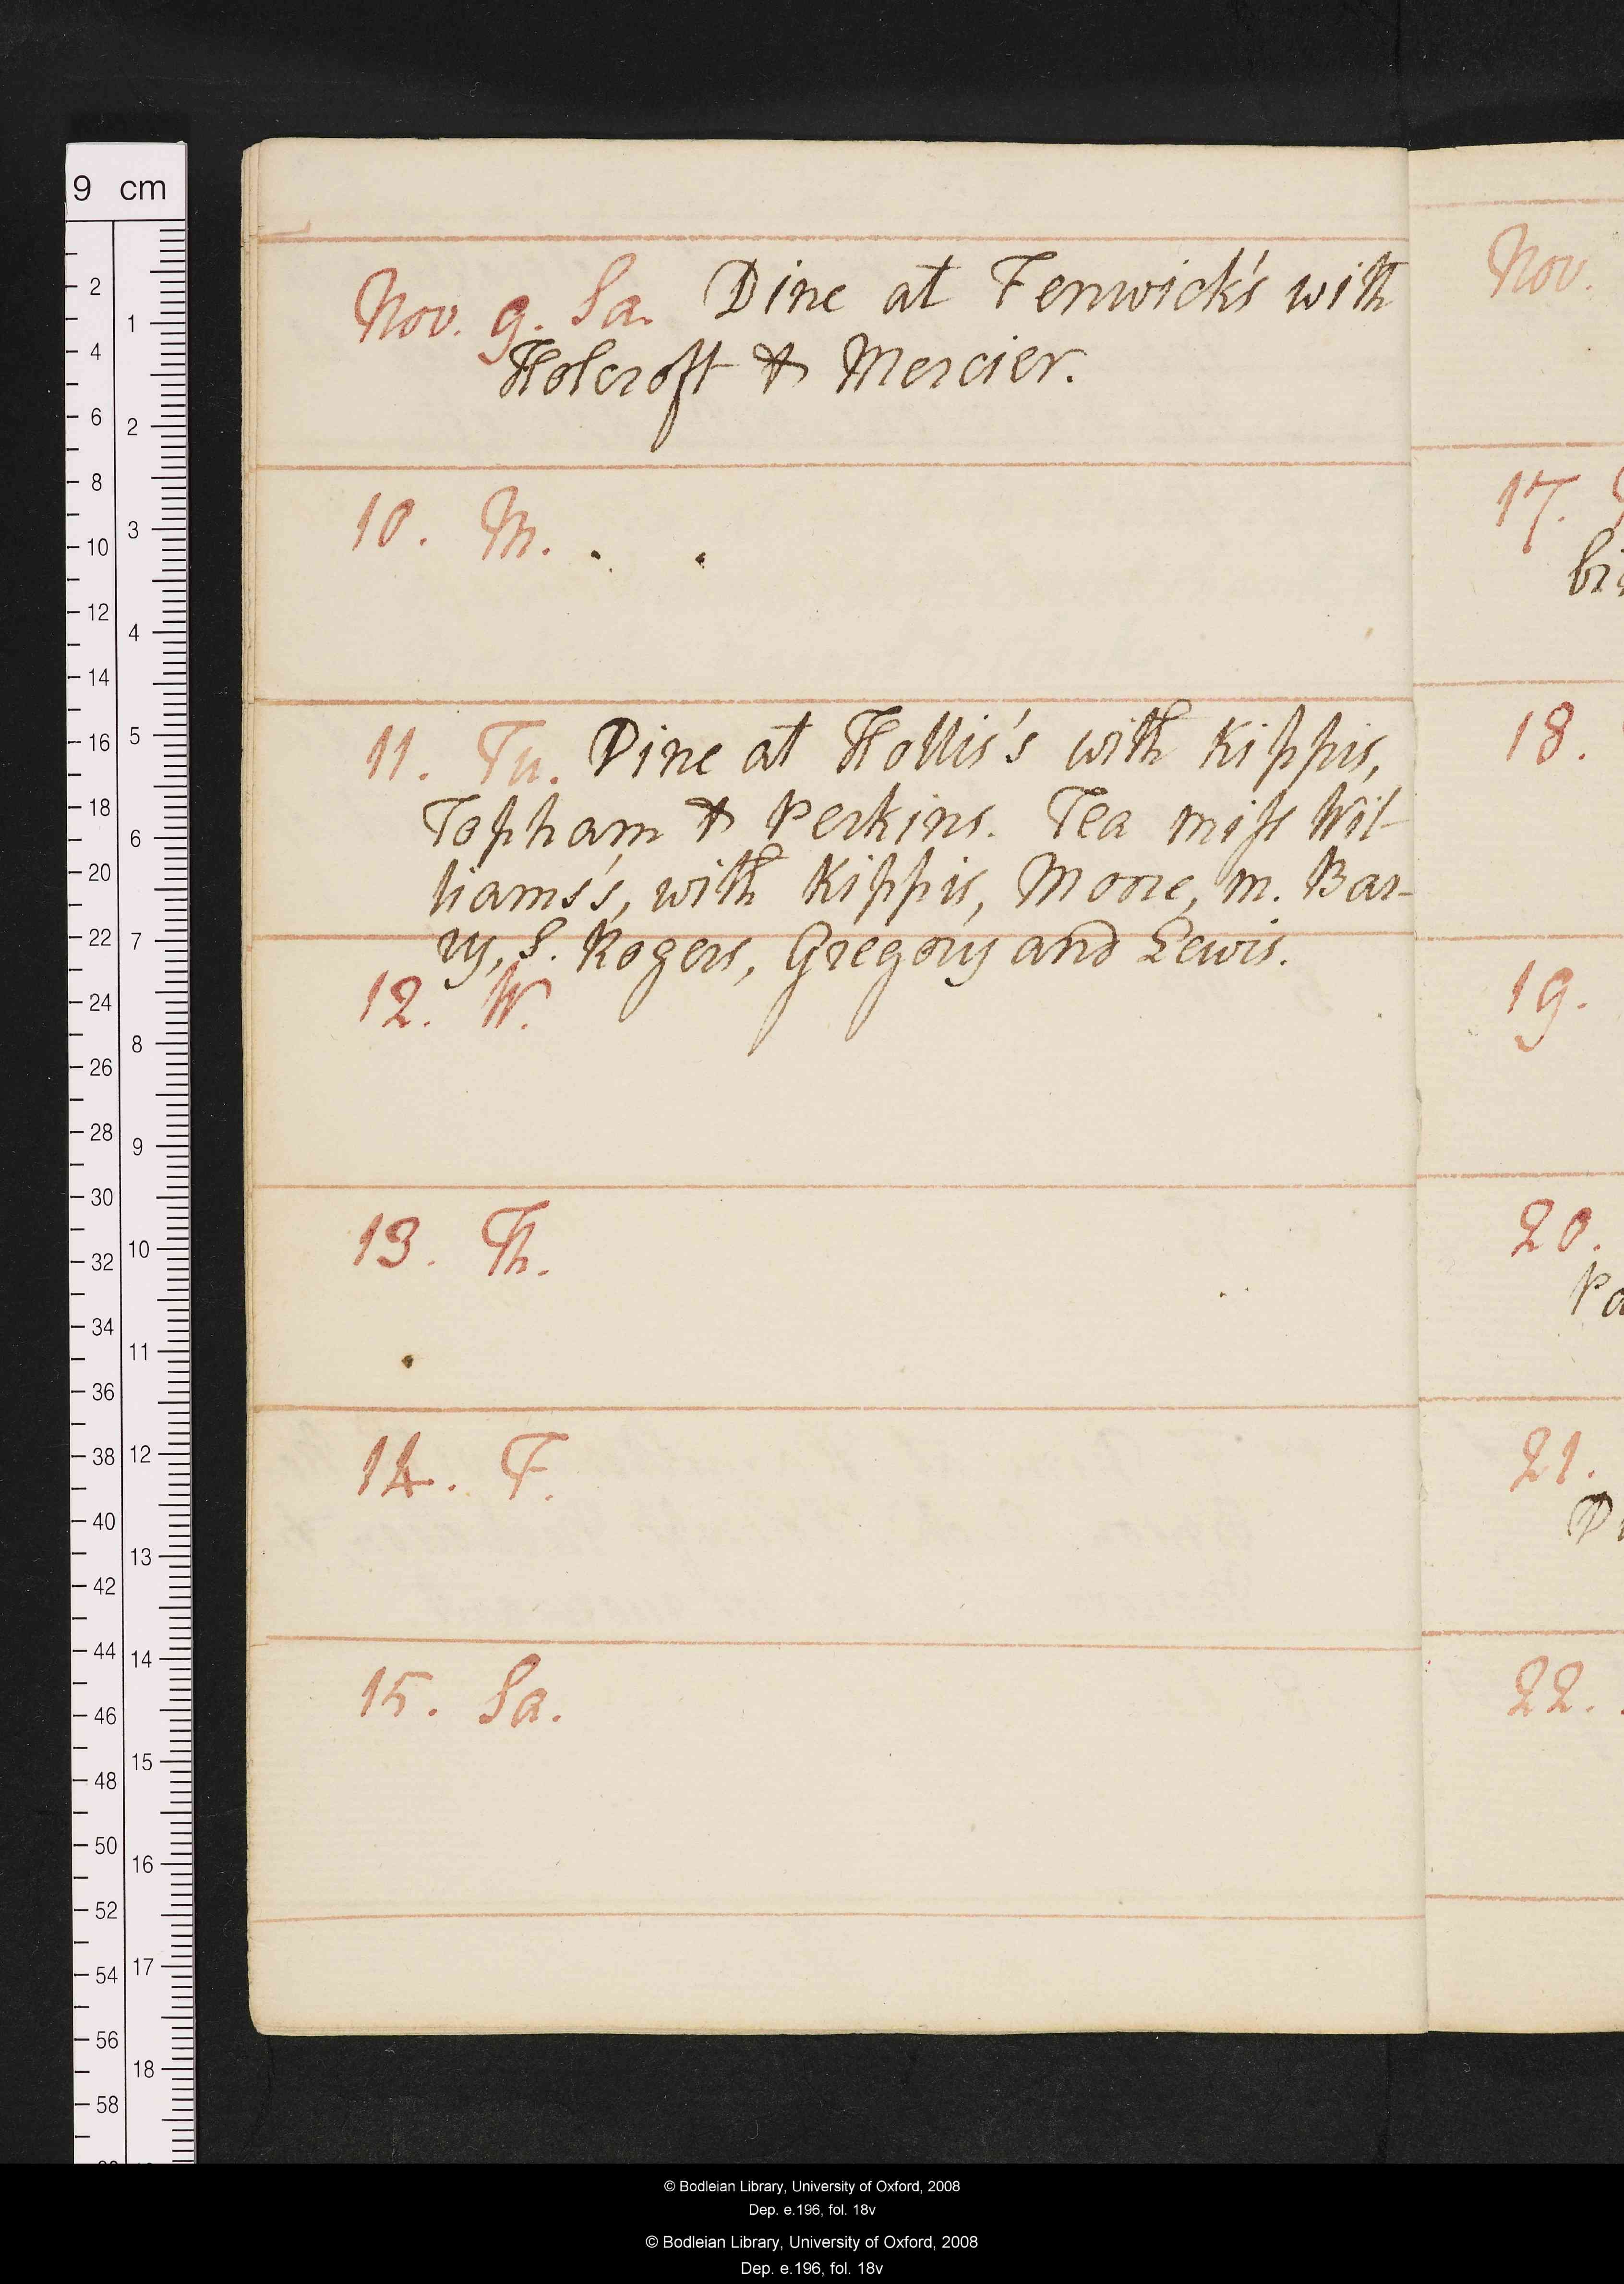 Nov. 9. Sa. Dine at Fenwick's with
Holcroft & Mercier.
10. M.
11. Tu. Dine at Hollis's with Kippis,
Topham & Perkins. Tea miss Wil-
liams's, with Kippis, Moore, m. Bar-
ry, S. Rogers, Gregory and Lewis.
12. W.
13. Th.
14. F.
15. Sa.
Nov.
17.
18.
19.
20.
21.
22.
9 cm
2
4
6
8
10
12
14
16
18
20
22
24
26
28
30
32
34
36
38
40
42
44
46
48
50
52
54
56
58
1
2
3
4
5
6
7
8
9
10
11
12
13
14
15
16
17
18
© Bodleian Library, University of Oxford, 2008
Dep. e.196, fol. 18v
© Bodleian Library, University of Oxford, 2008
Dep. e.196, fol. 18v